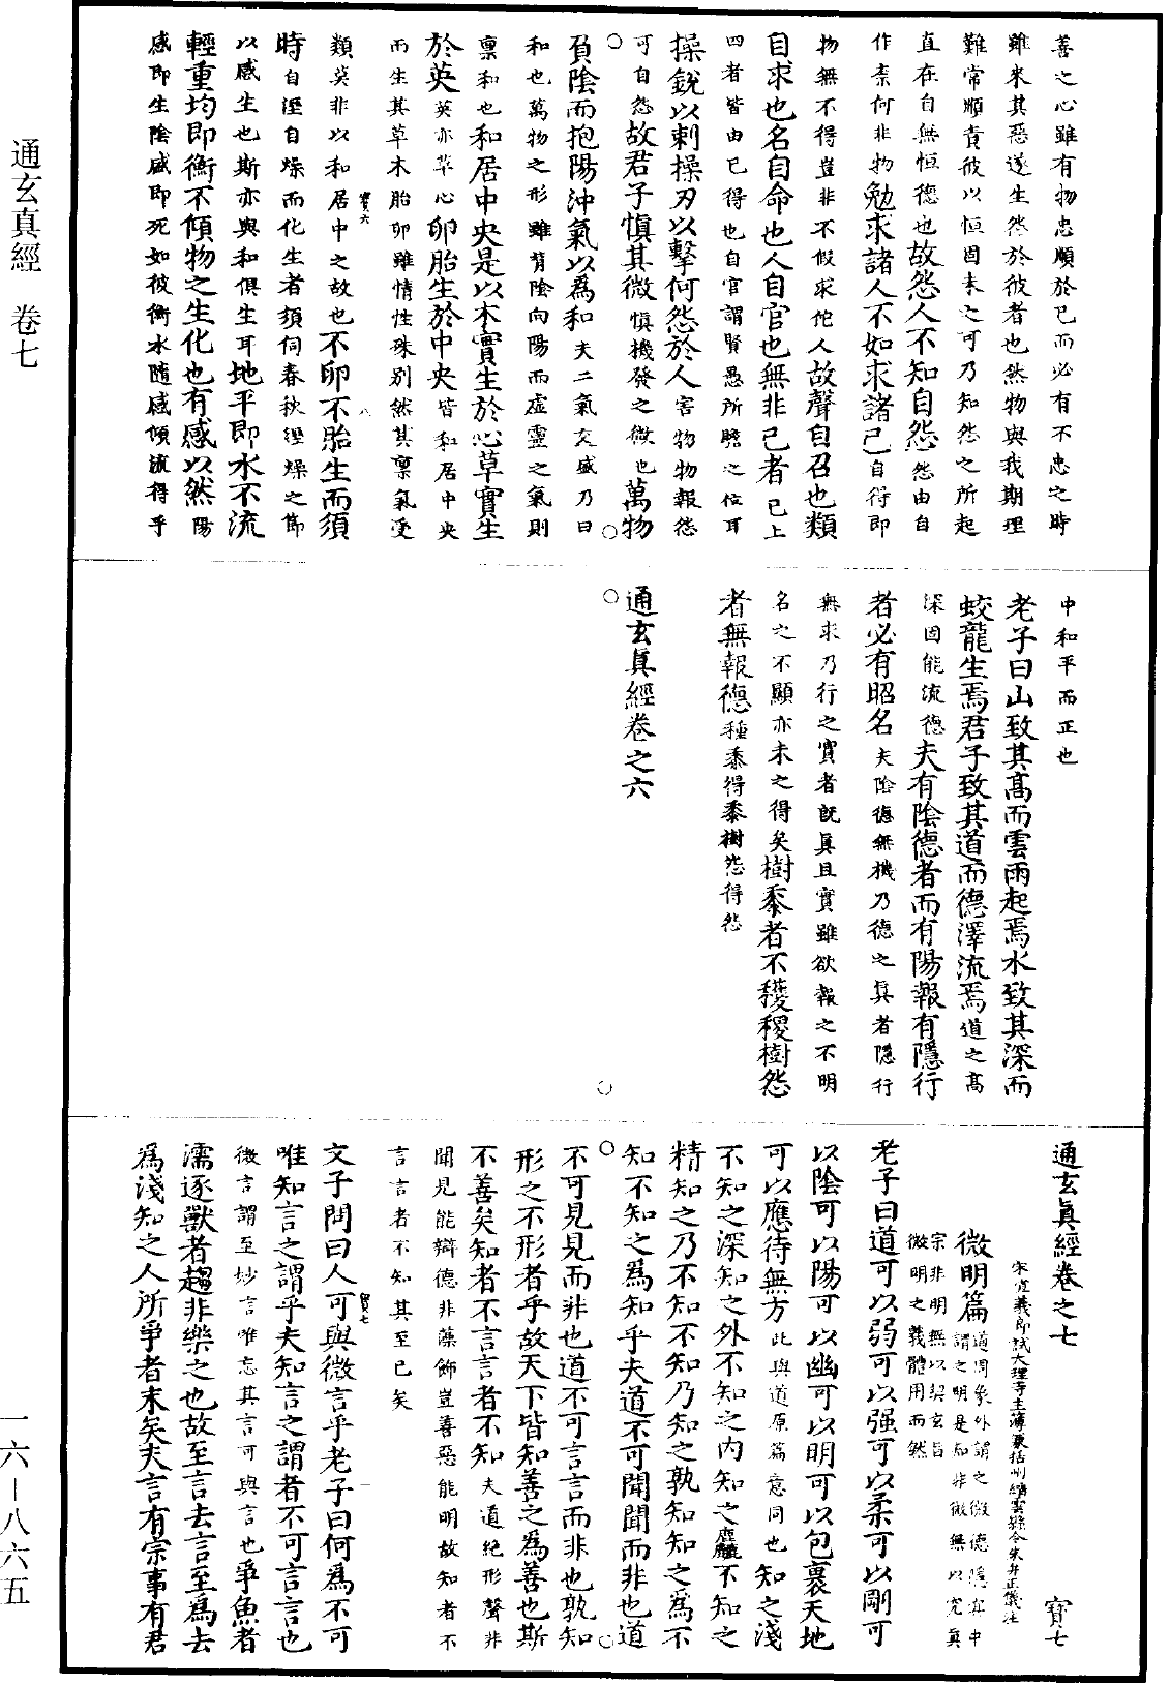 善之心雖有物忠順於已而必有不忠之時
雖來其惡遂生然於彼者也然物與我期理
難常順責彼以恒固未之可乃知怨之所起
直在自無恒德也故怨人不知自怨怨由自
作柰何非物勉求諸人不如求諸己自得即
物無不得豈非不假求佗人故聲自召也類
自求也名自命也人自官也無非己者已上
四者皆由已得也自官謂賢愚所瞻之位耳
操銳以刺操刃以擊何怨於人害物物報怨
可自怨故君子慎其微慎機發之微也萬物
負陰而抱陽沖氣以為和夫二氣交感乃曰
和也萬物之形雖背陰向陽而虛靈之氣則
稟和也和居中央是以木實生於心草實生
於英英亦草心卵胎生於中央皆和居中央
而生其草木胎卵雖情性殊別然其稟氣受
類莫非以和居中之故也不卵不胎生而須
時自溼自燥而化生者須伺春秋溼燥之節
以感生也斯亦與和俱生耳地平即水不流
輕重均即衡不傾物之生化也有感以然陽
感即生陰感即死如彼衡水隨感傾流得乎
寶六
八
中和平而正也
老子曰山致其高而雲雨起焉水致其深而
蛟龍生焉君子致其道而德澤流焉道之高
深固能流德夫有陰德者而有陽報有隱行
者必有昭名夫陰德無機乃德之真者隱行
無求乃行之實者既真且實雖欲報之不明
名之不顯亦未之得矣樹黍者不穫稷樹怨
者無報德種黍得黍樹怨得怨
通玄真經卷之六
通玄真經卷之七
寶七
宋宣義郎試大理寺主簿兼括州縉雲縣令朱弁正儀注
微明篇道周象外謂之微德隱冥中
謂之明是知非微無以究真
宗非明無以契玄旨
微明之義體用而然
老子曰道可以弱可以强可以柔可以剛可
以陰可以陽可以幽可以明可以包裹天地
可以應待無方此與道原篇意同也知之淺
不知之深知之外不知之內知之麤不知之
精知之乃不知不知乃知之孰知知之為不
知不知之為知乎夫道不可聞聞而非也道
不可見見而非也道不可言言而非也孰知
形之不形者乎故天下皆知善之為善也斯
不善矣知者不言言者不知夫道絕形聲非
聞見能辯德非藻飾豈善惡能明故知者不
言言者不知其至已矣
文子問曰人可與微言乎老子曰何為不可
唯知言之謂乎夫知言之謂者不可言言也
微言謂至妙言唯忘其言可與言也爭魚者
濡逐獸者趨非樂之也故至言去言至為去
為淺知之人所爭者末矣夫言有宗事有君
寶七
一
通玄真經　卷七
一六—八六五